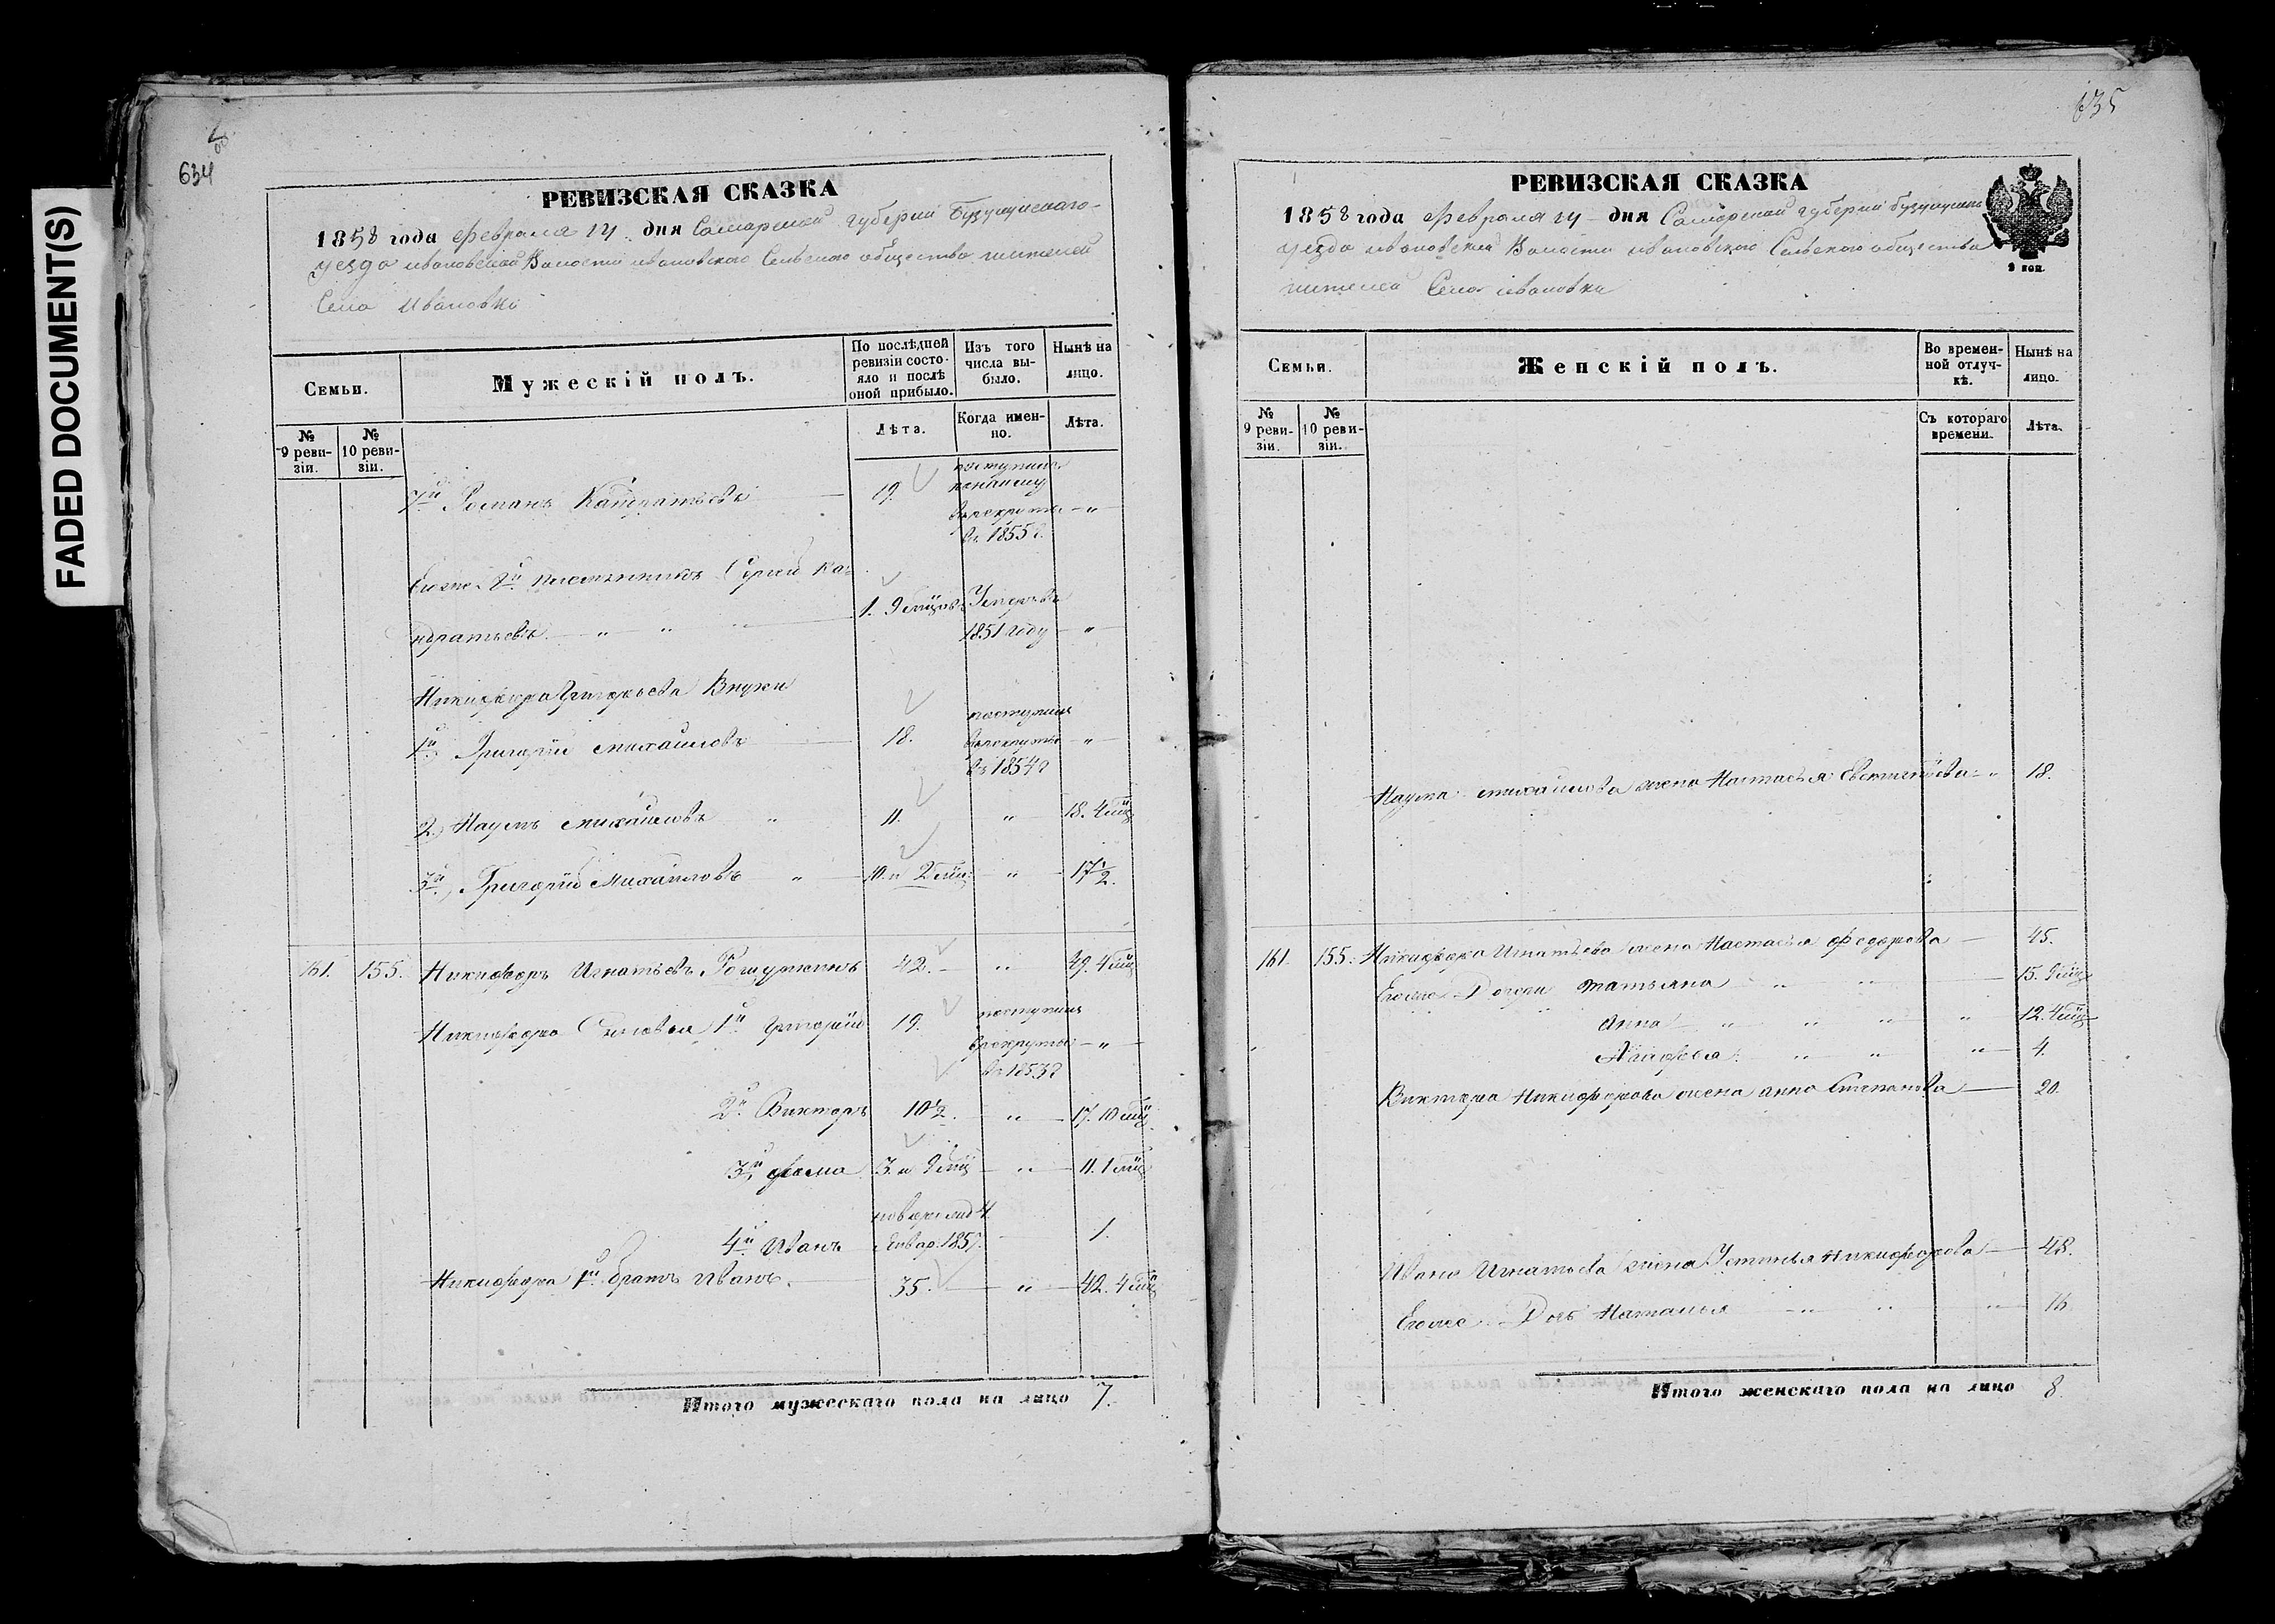 FADED DOCUMENT(S)
634
РЕВИЗСКАЯ СКАЗКА
1858 года февраля 14 дня Самарской губернии Бузулукскаго
уезда ивановской Волости ивановского Сельского общества жителей
Села Ивановки
Семьи.
Мужескій полъ.
По послѣдней ревизіи состояло и послѣ оной прибыло.
Изъ того числа выбыло.
Нынѣ на лицо.
№ 9 ревизіи.
№ 10 ревизіи.
Лѣта.
Когда именно.
Лѣта.
7й Романъ Кандратьевъ 19. поступилъ
понайму
врекруты "
въ 1855г.
Егоже 2й племянникъ Сергей Ка=
ндратьевъ " " " 1. 9 мцовъ Умеръ въ
1851 году "
Никифора Григорьева Внуки
1й Григорій Михайловъ 18. поступилъ
врекруты "
въ 1854г
2) Наумъ Михайловъ " 11. " 18. 4 мц
3й, Григорій Михайловъ " 10. и 2 мц " 17 1/2.
161. 155. Никифоръ Игнатьевъ 42. " 49. 4 мц
Никифора Сыновья 1й Григорій 19. поступилъ
врекруты "
въ 1853г
2й Викторъ 10 1/2. " 17. 10 мц
3й Фома 3. и 9 мц " 11. 1 мц
4й Иванъ Январ. 1857. 1.
Никифора 1й братъ Иванъ. 35. " 42. 4 мц
Итого мужескаго пола на лицо 7.
635
РЕВИЗСКАЯ СКАЗКА
1858 года февраля 14 дня Самарской губернии бузулукскаго
уезда ивановской Волости ивановского Сельского общества
жителей Села ивановки
2 коп.
Семьи.
Женскій полъ.
Во временной отлучкѣ.
Нынѣ на лицо.
№ 9 ревизіи.
№ 10 ревизіи.
Съ котораго времени.
Лѣта.
Наума михайлова жена Настасья Евстигнѣева " 18.
161. 155. Никифора Игнатьева жена Настасья федорова 45.
Егоже Дочери татьяна " " 15. 9 мц
Анна " " " " 12. 4 мц
Агафья " " " 4.
Виктора Никифорова жена анна Степанова 20.
Ивана Игнатьева жена Устинья Никифорова 48.
Егоже Дочь Наталья " " " 16
Итого женскаго пола на лицо 8.